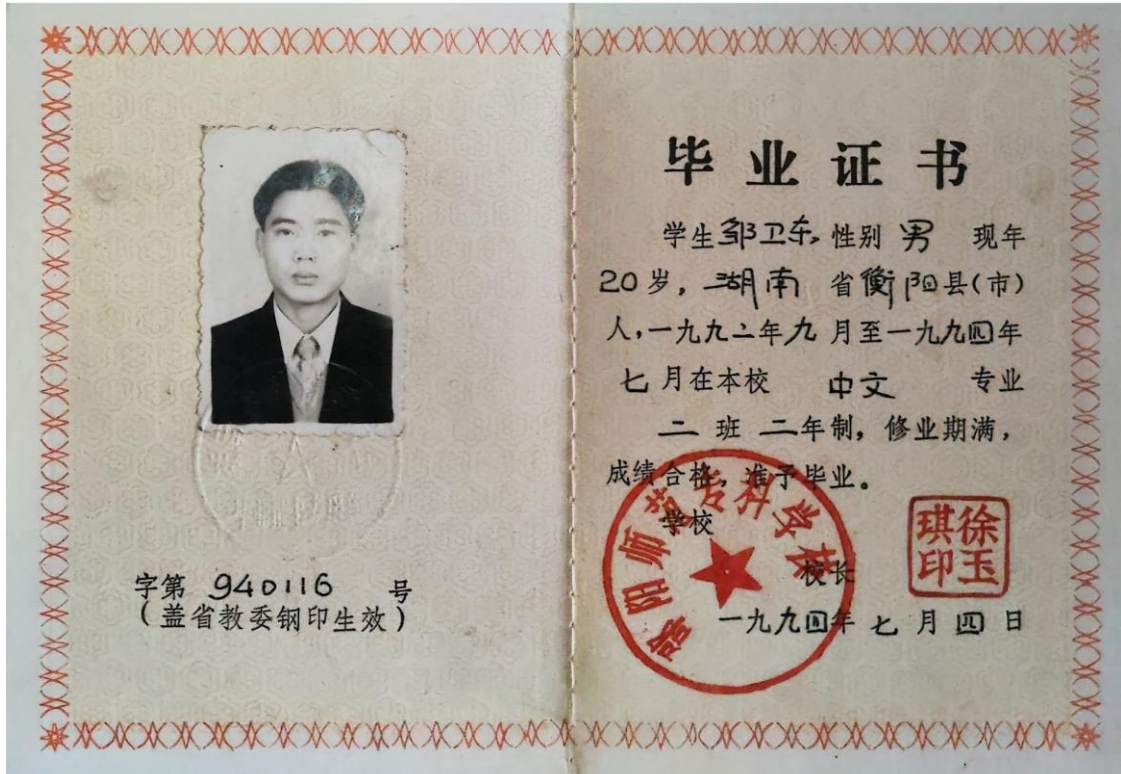 字第 940116 号
(盖省教委钢印生效)
毕业证书
学生邹卫东,性别 男 现年
20岁,湖南 省衡阳县(市)
人,一九九二年九 月至一九九四年
七月在本校 中文 专业
二 班 二年制,修业期满,
成绩合格,准予毕业。
学校
衡阳师范专科学校
校长
徐玉琪印
一九九四年 七 月 四 日